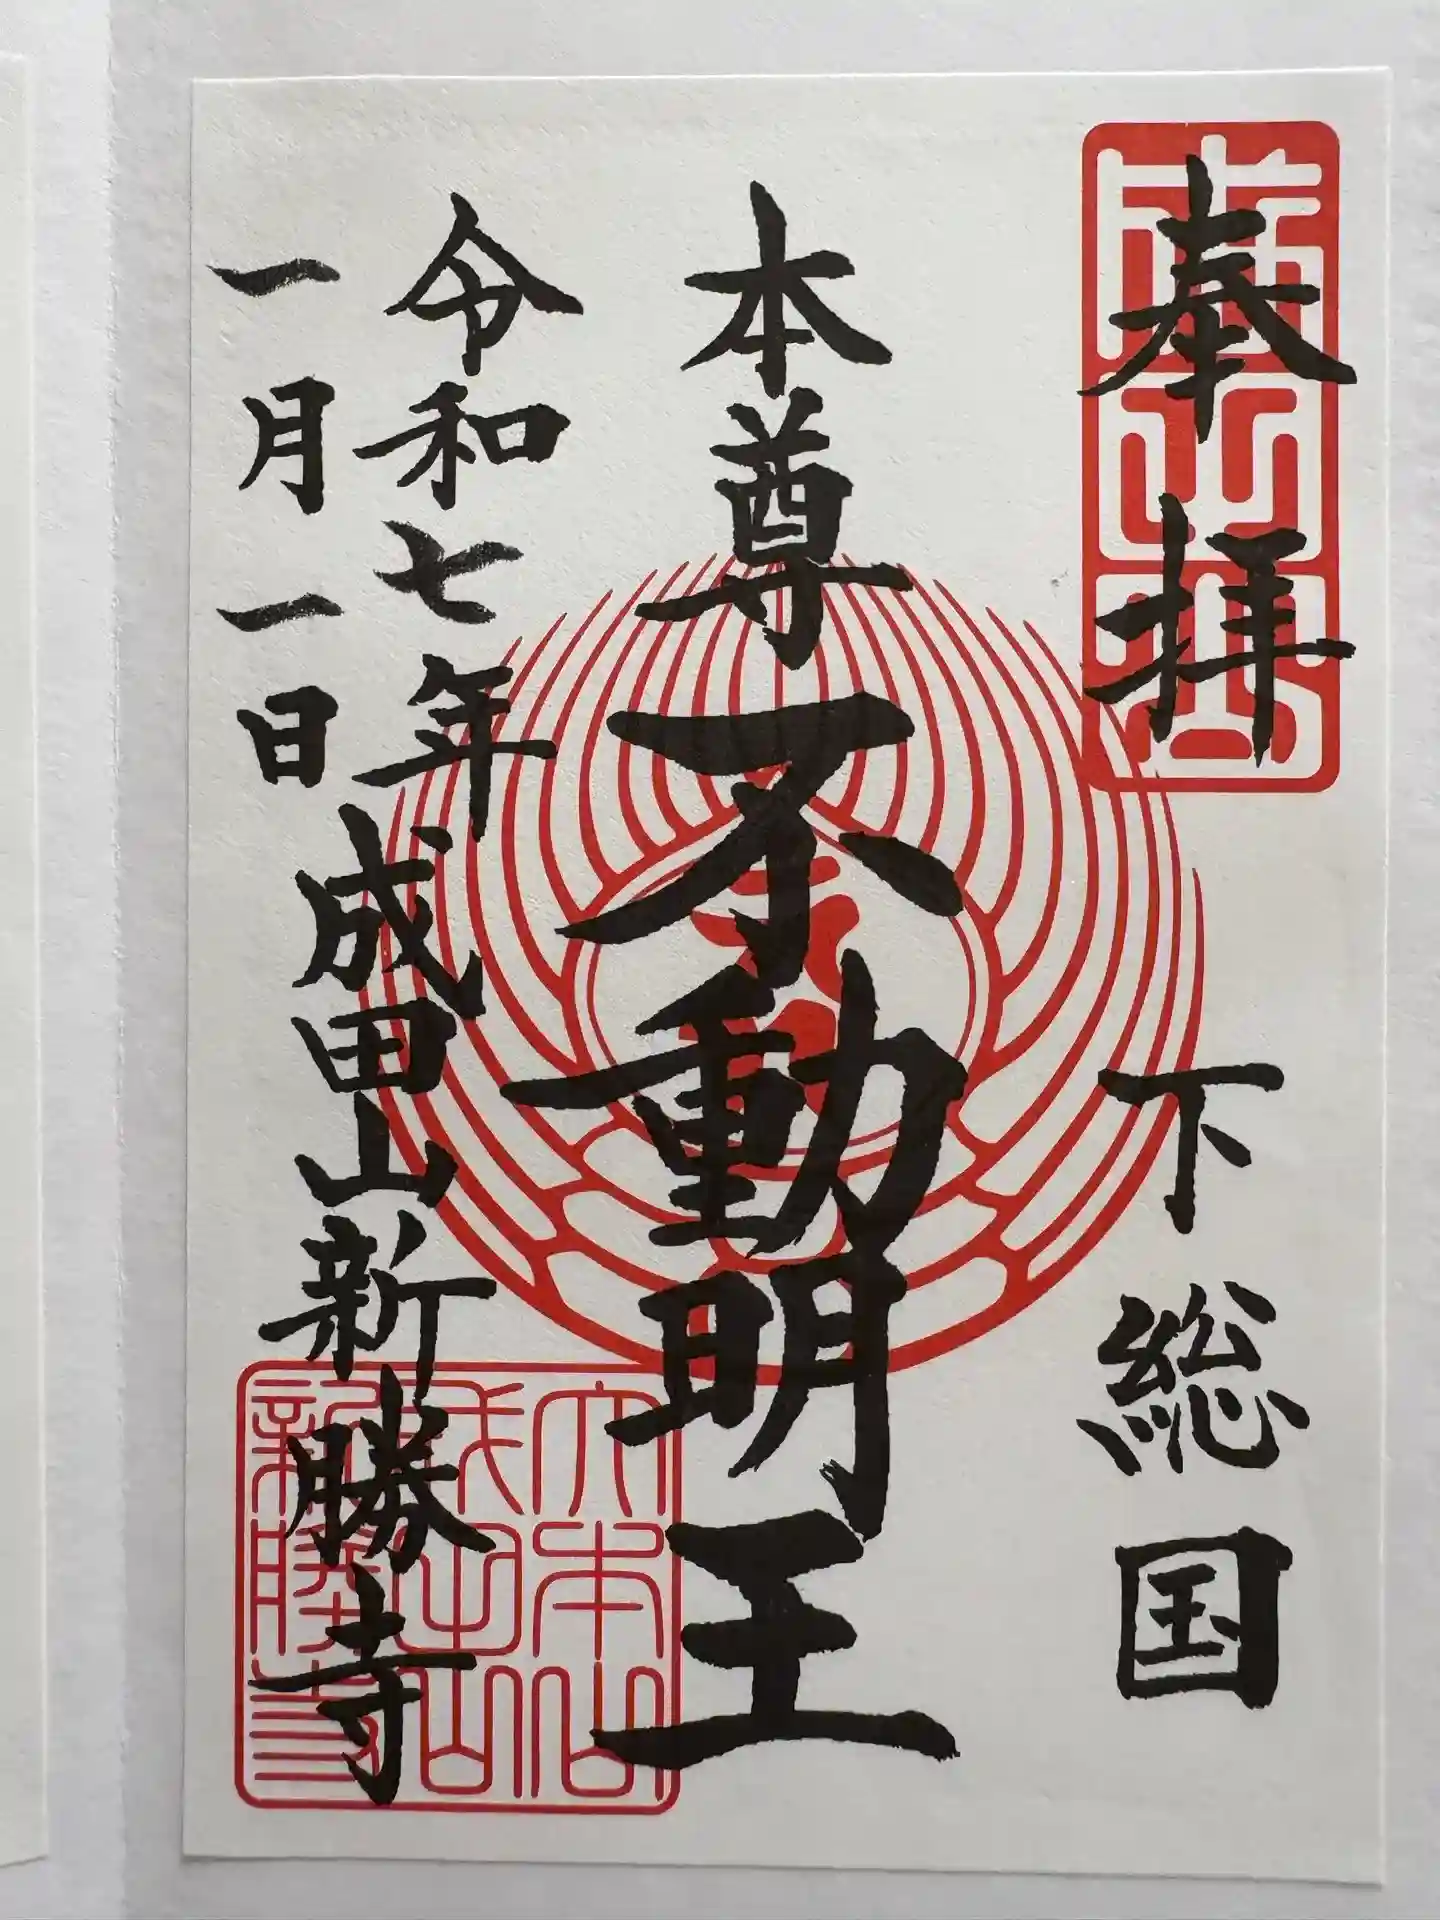 奉拝
下総国
本尊不動明王
令和七年
一月一日
成田山新勝寺
大本山
成田山
新勝寺